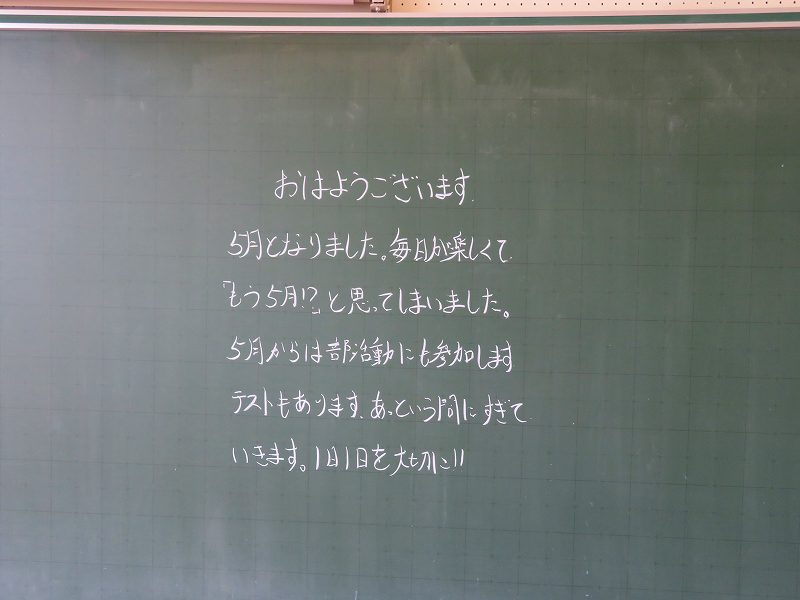 おはようございます
5月となりました。毎日が楽しくて
「もう5月!?」と思ってしまいました。
5月からは部活動にも参加します
テストもあります、あっという間にすぎて
いきます。1日1日を大切に!!